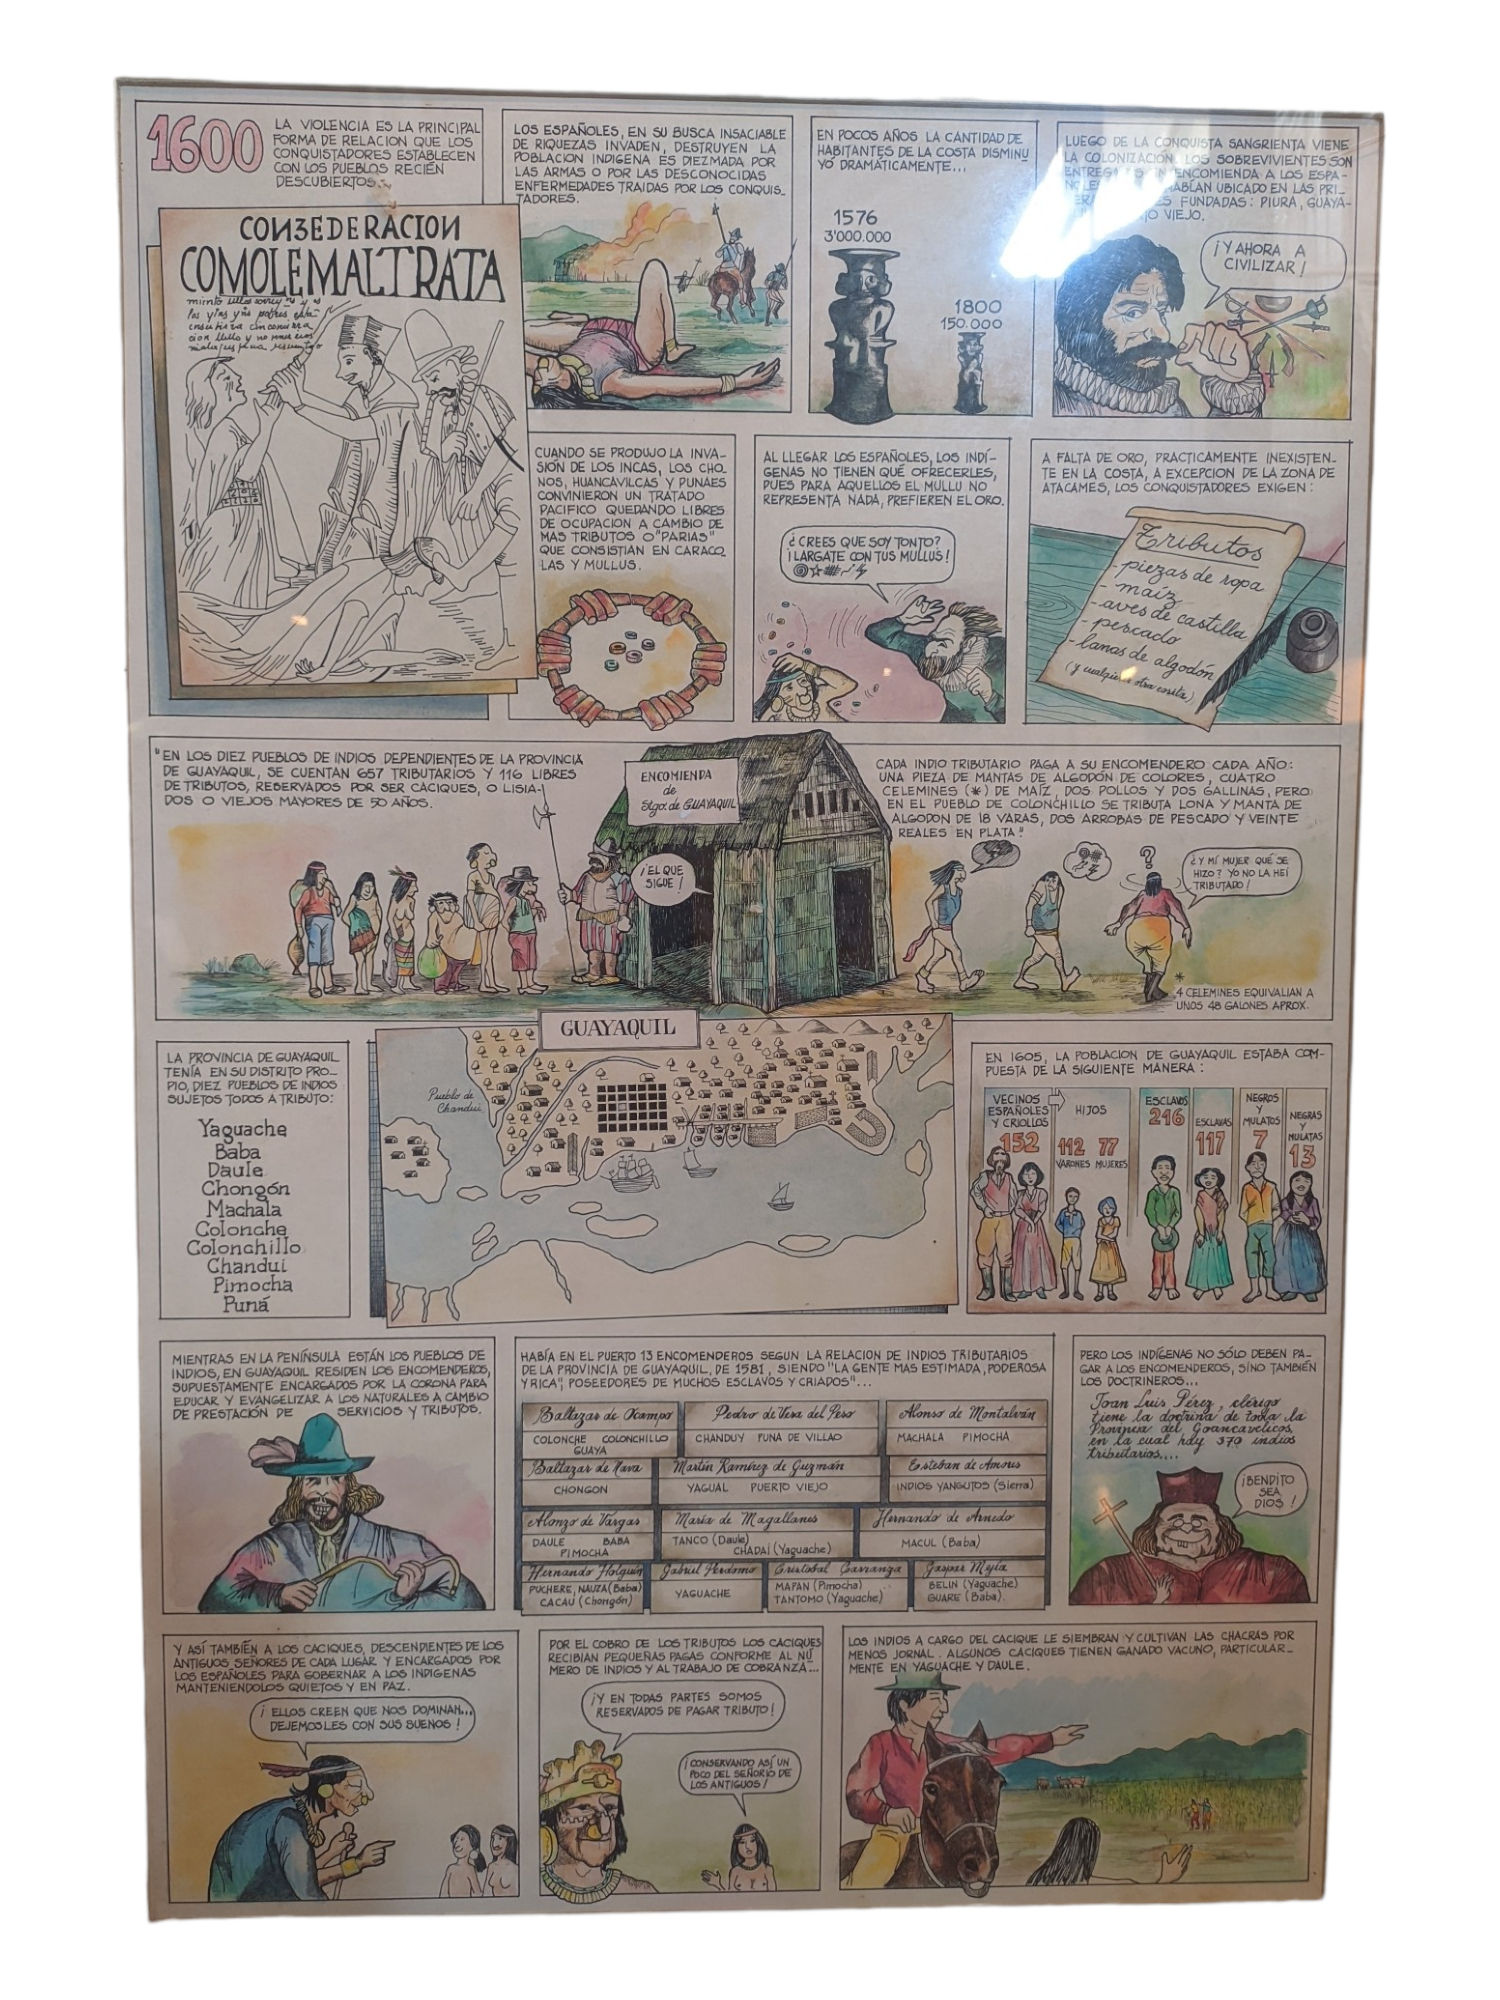 1600
LA VIOLENCIA ES LA PRINCIPAL
FORMA DE RELACION QUE LOS
CONQUISTADORES ESTABLECEN
CON LOS PUEBLOS RECIEN
DESCUBIERTOS.
CONZEDERACION
COMOLEMALTRATA
LOS ESPAÑOLES, EN SU BUSCA INSACIABLE
DE RIQUEZAS INVADEN, DESTRUYEN LA
POBLACION INDIGENA ES DIEZMADA POR
LAS ARMAS O POR LAS DESCONOCIDAS
ENFERMEDADES TRAIDAS POR LOS CONQUIS-
TADORES.
EN POCOS AÑOS LA CANTIDAD DE
HABITANTES DE LA COSTA DISMINU
YÓ DRAMÁTICAMENTE...
1576
3'000.000
1800
150.000
LUEGO DE LA CONQUISTA SANGRIENTA VIENE
LA COLONIZACIÓN. LOS SOBREVIVIENTES SON
EN ENCOMIENDA A LOS ESPA-
HABÍAN UBICADO EN LAS PRI-
FUNDADAS: PIURA, GUAYA-
VIEJO.
¡Y AHORA A
CIVILIZAR!
CUANDO SE PRODUJO LA INVA-
SIÓN DE LOS INCAS, LOS CHO
NOS, HUANCAVILCAS Y PUNAES
CONVINIERON UN TRATADO
PACIFICO QUEDANDO LIBRES
DE OCUPACION A CAMBIO DE
MAS TRIBUTOS O "PARIAS"
QUE CONSISTIAN EN CARACO
LAS Y MULLUS.
AL LLEGAR LOS ESPAÑOLES, LOS INDÍ-
GENAS NO TIENEN QUÉ OFRECERLES,
PUES PARA AQUELLOS EL MULLU NO
REPRESENTA NADA, PREFIEREN EL ORO.
¿CREES QUE SOY TONTO?
¡LARGATE CON TUS MULLUS!
A FALTA DE ORO, PRACTICAMENTE INEXISTEN-
TE EN LA COSTA, A EXCEPCION DE LA ZONA DE
ATACAMES, LOS CONQUISTADORES EXIGEN:
Tributos
- piezas de ropa
- maíz
- aves de castilla
- pescado
- lanas de algodón
(y cualquier otra cosita)
"EN LOS DIEZ PUEBLOS DE INDIOS DEPENDIENTES DE LA PROVINCIA
DE GUAYAQUIL, SE CUENTAN 657 TRIBUTARIOS Y 116 LIBRES
DE TRIBUTOS, RESERVADOS POR SER CACIQUES, O LISIA-
DOS O VIEJOS MAYORES DE 50 AÑOS.
ENCOMIENDA
de
Stgo. de GUAYAQUIL
¡EL QUE
SIGUE!
CADA INDIO TRIBUTARIO PAGA A SU ENCOMENDERO CADA AÑO:
UNA PIEZA DE MANTAS DE ALGODÓN DE COLORES, CUATRO
CELEMINES (*) DE MAÍZ, DOS POLLOS Y DOS GALLINAS, PERO
EN EL PUEBLO DE COLONCHILLO SE TRIBUTA LONA Y MANTA DE
ALGODON DE 18 VARAS, DOS ARROBAS DE PESCADO Y VEINTE
REALES EN PLATA."
?
¿Y MÍ MUJER QUÉ SE
HIZO? YO NO LA HEÍ
TRIBUTADO!
*
4 CELEMINES EQUIVALIAN A
UNOS 48 GALONES APROX.
LA PROVINCIA DE GUAYAQUIL
TENÍA EN SU DISTRITO PRO-
PIO, DIEZ PUEBLOS DE INDIOS
SUJETOS TODOS A TRIBUTO:
Yaguache
Baba
Daule
Chongón
Machala
Colonche
Colonchillo
Chandui
Pimocha
Puná
GUAYAQUIL
Pueblo de
Chandui
EN 1605, LA POBLACION DE GUAYAQUIL ESTABA COM-
PUESTA DE LA SIGUIENTE MANERA:
VECINOS
ESPAÑOLES
Y CRIOLLOS
152
HIJOS
112 77
VARONES MUJERES
ESCLAVOS
216
ESCLAVAS
117
NEGROS
Y
MULATOS
7
NEGRAS
Y
MULATAS
13
MIENTRAS EN LA PENÍNSULA ESTÁN LOS PUEBLOS DE
INDIOS, EN GUAYAQUIL RESIDEN LOS ENCOMENDEROS,
SUPUESTAMENTE ENCARGADOS POR LA CORONA PARA
EDUCAR Y EVANGELIZAR A LOS NATURALES A CAMBIO
DE PRESTACIÓN DE SERVICIOS Y TRIBUTOS.
HABÍA EN EL PUERTO 13 ENCOMENDEROS SEGUN LA RELACION DE INDIOS TRIBUTARIOS
DE LA PROVINCIA DE GUAYAQUIL, DE 1581, SIENDO "LA GENTE MAS ESTIMADA, PODEROSA
Y RICA", POSEEDORES DE MUCHOS ESCLAVOS Y CRIADOS"...
Baltazar de Ocampo
COLONCHE COLONCHILLO
GUAYA
Pedro de Vera del Peso
CHANDUY PUNA DE VILLAO
Alonso de Montalván
MACHALA PIMOCHA
Baltazar de Nava
CHONGON
Martín Ramírez de Guzmán
YAGUAL PUERTO VIEJO
Esteban de Amores
INDIOS YANGUTOS (Sierra)
Alonzo de Vargas
DAULE BABA
PIMOCHA
María de Magallanes
TANCO (Daule)
CHADAI (Yaguache)
Hernando de Arnedo
MACUL (Baba)
Hernando Holguín
PUCHERE, NAUZA (Baba)
CACAU (Chongón)
Gabriel Perdomo
YAGUACHE
Cristobal Carranza
MAPAN (Pimocha)
TANTOMO (Yaguache)
Gaspar Mejía
BELIN (Yaguache)
GUARE (Baba)
PERO LOS INDÍGENAS NO SÓLO DEBEN PA-
GAR A LOS ENCOMENDEROS, SÍNO TAMBIÉN
LOS DOCTRINEROS...
Joan Luis Pérez, clérigo
tiene la doctrina de toda la
Provinçia del Goancavelicos,
en la cual hay 370 indios
tributarios....
¡BENDITO
SEA
DIOS!
Y ASÍ TAMBIÉN A LOS CACIQUES, DESCENDIENTES DE LOS
ANTIGUOS SEÑORES DE CADA LUGAR Y ENCARGADOS POR
LOS ESPAÑOLES PARA GOBERNAR A LOS INDIGENAS
MANTENIENDOLOS QUIETOS Y EN PAZ.
¡ELLOS CREEN QUE NOS DOMINAN...
DEJEMOSLES CON SUS SUENOS!
POR EL COBRO DE LOS TRIBUTOS LOS CACIQUES
RECIBIAN PEQUEÑAS PAGAS CONFORME AL NÚ
MERO DE INDIOS Y AL TRABAJO DE COBRANZA...
¡Y EN TODAS PARTES SOMOS
RESERVADOS DE PAGAR TRIBUTO!
¡CONSERVANDO ASÍ UN
POCO DEL SEÑORÍO DE
LOS ANTIGUOS!
LOS INDIOS A CARGO DEL CACIQUE LE SIEMBRAN Y CULTIVAN LAS CHACRAS POR
MENOS JORNAL. ALGUNOS CACIQUES TIENEN GANADO VACUNO, PARTICULAR-
MENTE EN YAGUACHE Y DAULE.